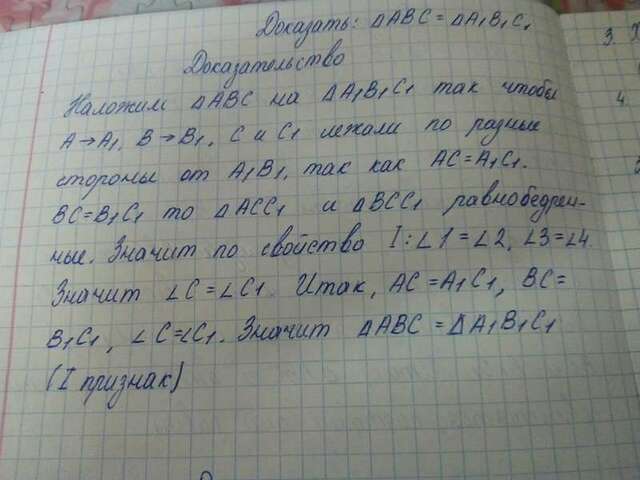 Доказать: ΔABC = ΔA₁B₁C₁
3.
Доказательство
Наложим ΔABC на ΔA₁B₁C₁ так чтобы
4.
A→A₁, B→B₁, C и C₁ лежали по разные
стороны от A₁B₁, так как AC=A₁C₁.
BC=B₁C₁ то ΔACC₁ и ΔBCC₁ равнобедрен-
ные. Значит по свойство I: ∠1=∠2, ∠3=∠4.
Значит ∠C=∠C₁. Итак, AC=A₁C₁, BC=
B₁C₁, ∠C=∠C₁. Значит ΔABC = ΔA₁B₁C₁
(I признак)